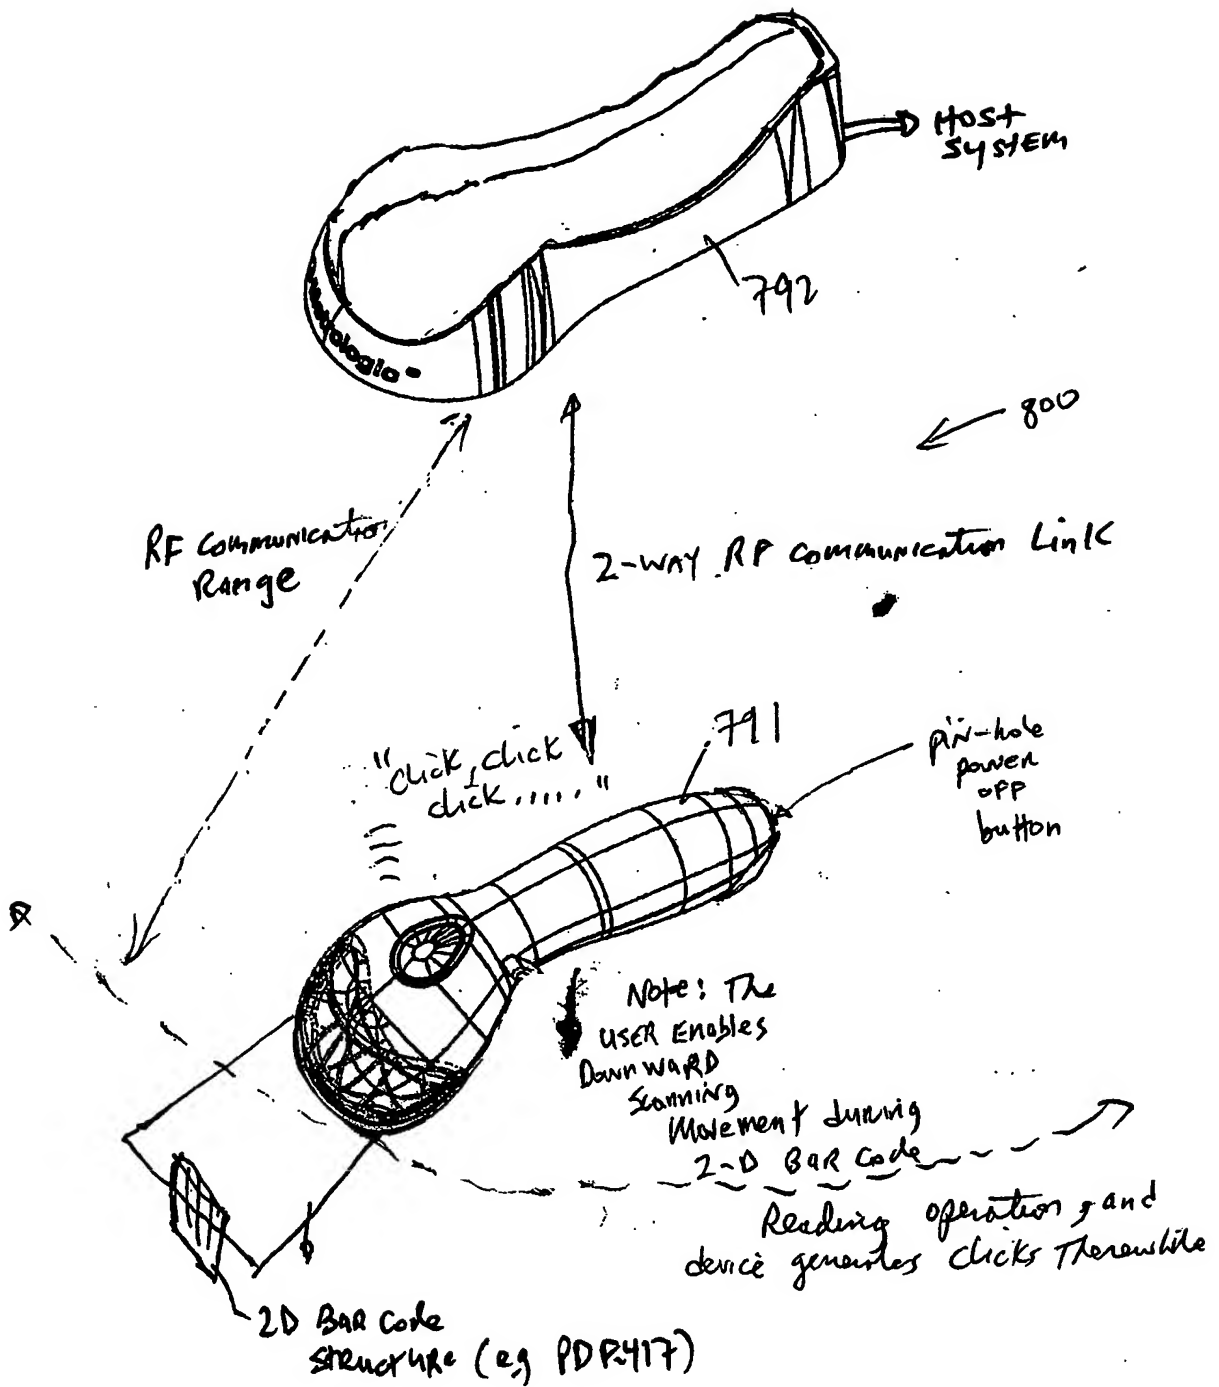 HOST
SYSTEM
792
metrologic
800
RF Communication
Range
2-WAY RF Communication Link
"click, click
click....."
791
pin-hole
power
off
button
Note: The
USER Enables
DownWARD
Scanning
Movement during
2-D BAR Code
Reading operation, and
device generates clicks Therewhile
2D BAR Code
structure (eg PDF417)